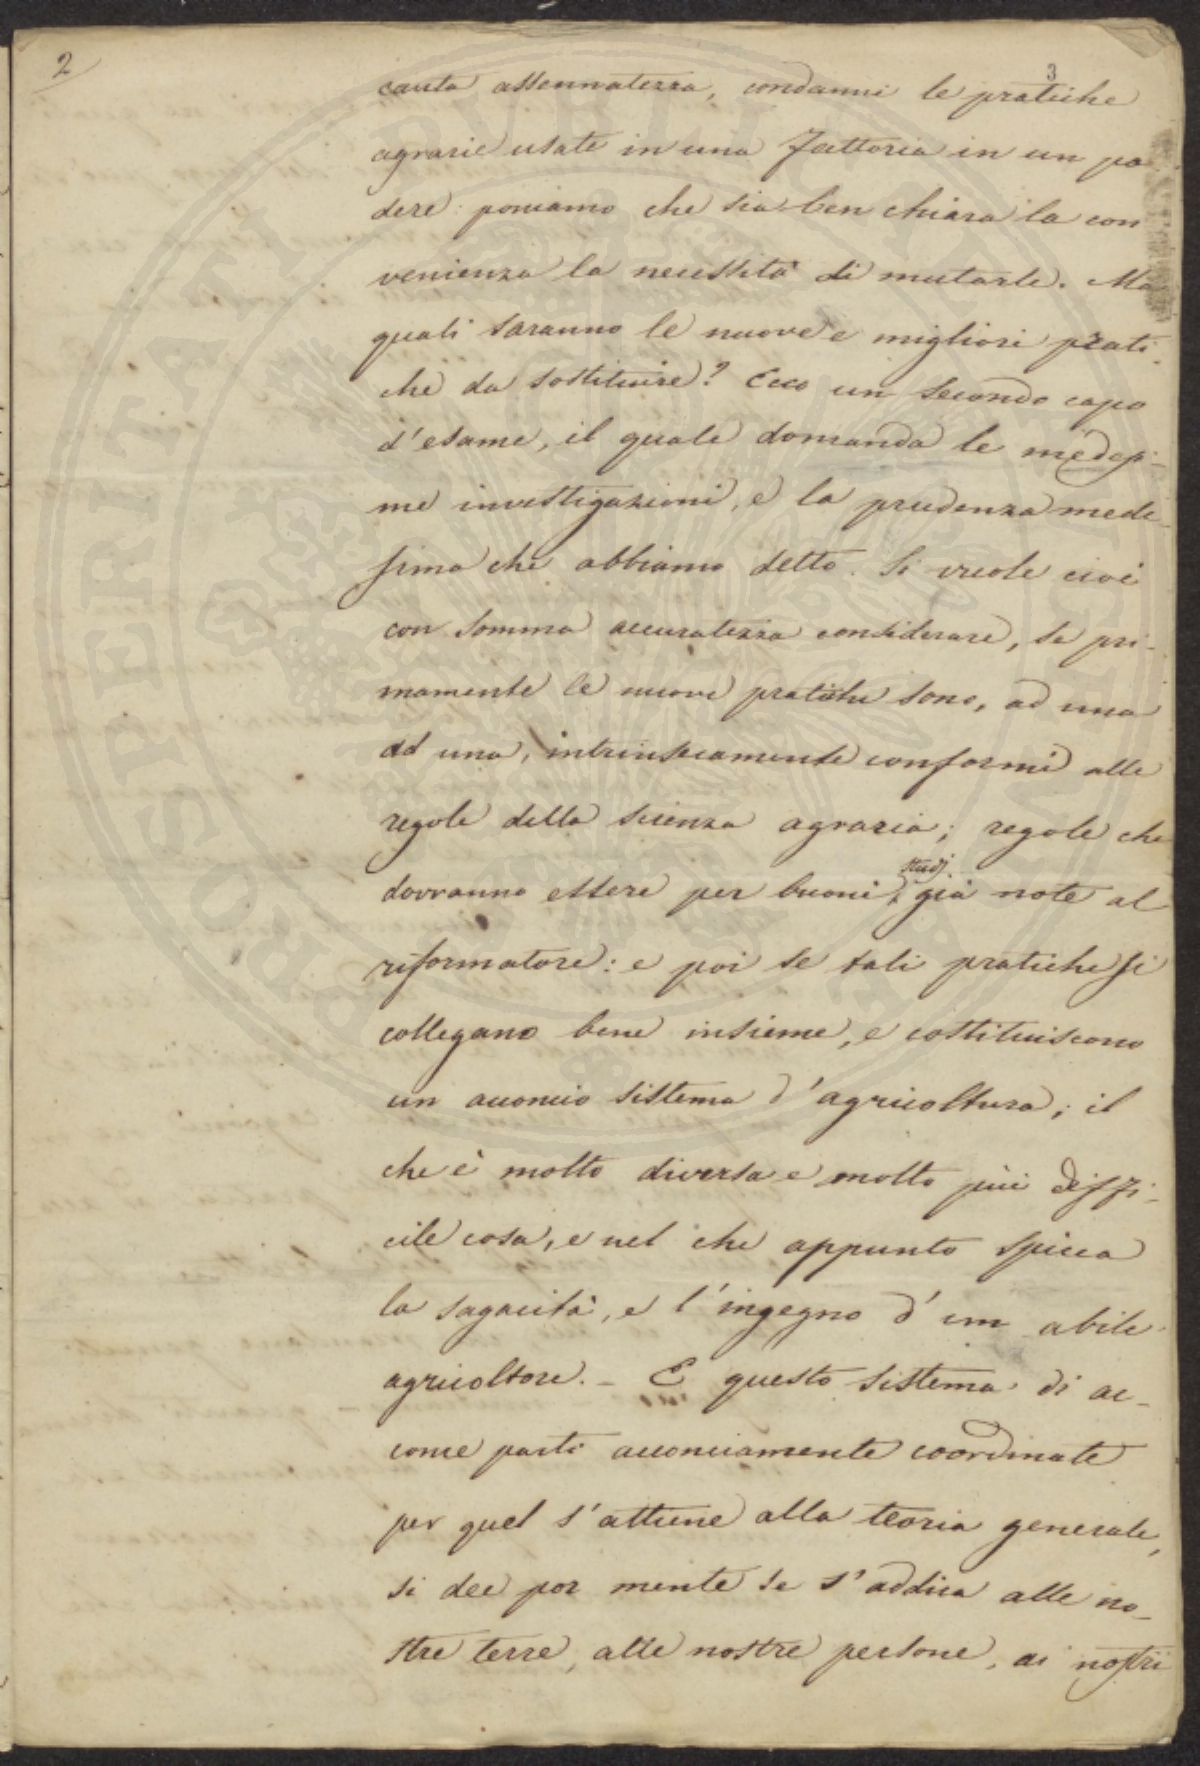 2
3
cauta assennatezza, condanni le pratiche
agrarie usate in una fattoria in un po
dere: poniamo che sia ben chiara la con
venienza la necessità di mutarle. Ma
quali saranno le nuove e migliori prati-
che da sostituire? Ecco un secondo capo
d'esame, il quale domanda le medesi-
me investigazioni, e la prudenza mede-
sima che abbiamo detto. Si vuole cioè
con somma accuratezza considerare, se pri-
mamente le nuove pratiche sono, ad una
ad una, intrinsecamente conformi alle
regole della scienza agraria; regole che
studj
dovranno essere per buoni già note al
riformatore: e poi se tali pratiche si
collegano bene insieme, e costituiscono
un acconcio sistema d'agricoltura; il
che è molto diversa e molto più diffi-
cile cosa, e nel che appunto spicca
la sagacità, e l'ingegno d'un abile
agricoltore. - E questo sistema di ac-
conce parti acconciamente coordinate
per quel s'attiene alla teoria generale,
si dee por mente se s'addica alle no-
stre terre, alle nostre persone, ai nostri
PROSPERITATI PUBLICAE